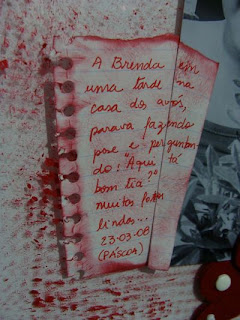 A Brenda em
uma tarde na
casa dos avós,
parava fazendo
pose e perguntan-
do: "Aqui tá
bom tia?"
muitas fotos
lindas...
23-03-08
(PÁSCOA)